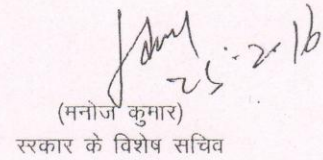 25-2-16
(मनोज कुमार)
सरकार के विशेष सचिव